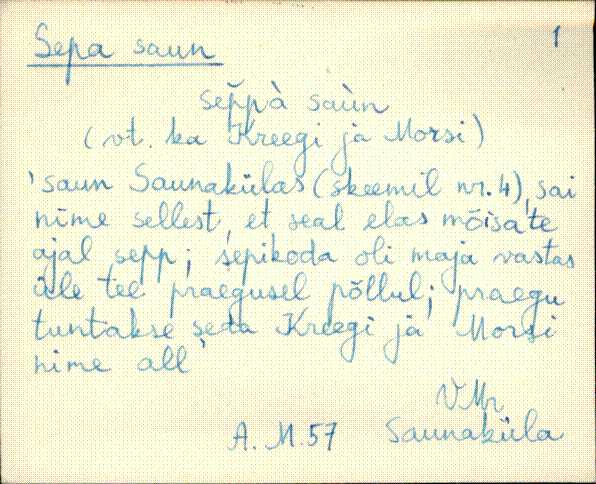 Sepa saun 1
sep̆pà saùn
(vt. ka Kreegi ja Morsi)
'saun Saunakülas (skeemil nr. 4), sai
nime sellest, et seal elas mõisate
ajal sepp; sepikoda oli maja vastas
üle tee praegusel põllul; praegu
tuntakse seda Kreegi ja Morsi
nime all'
VMr
A. M. 57 Saunaküla